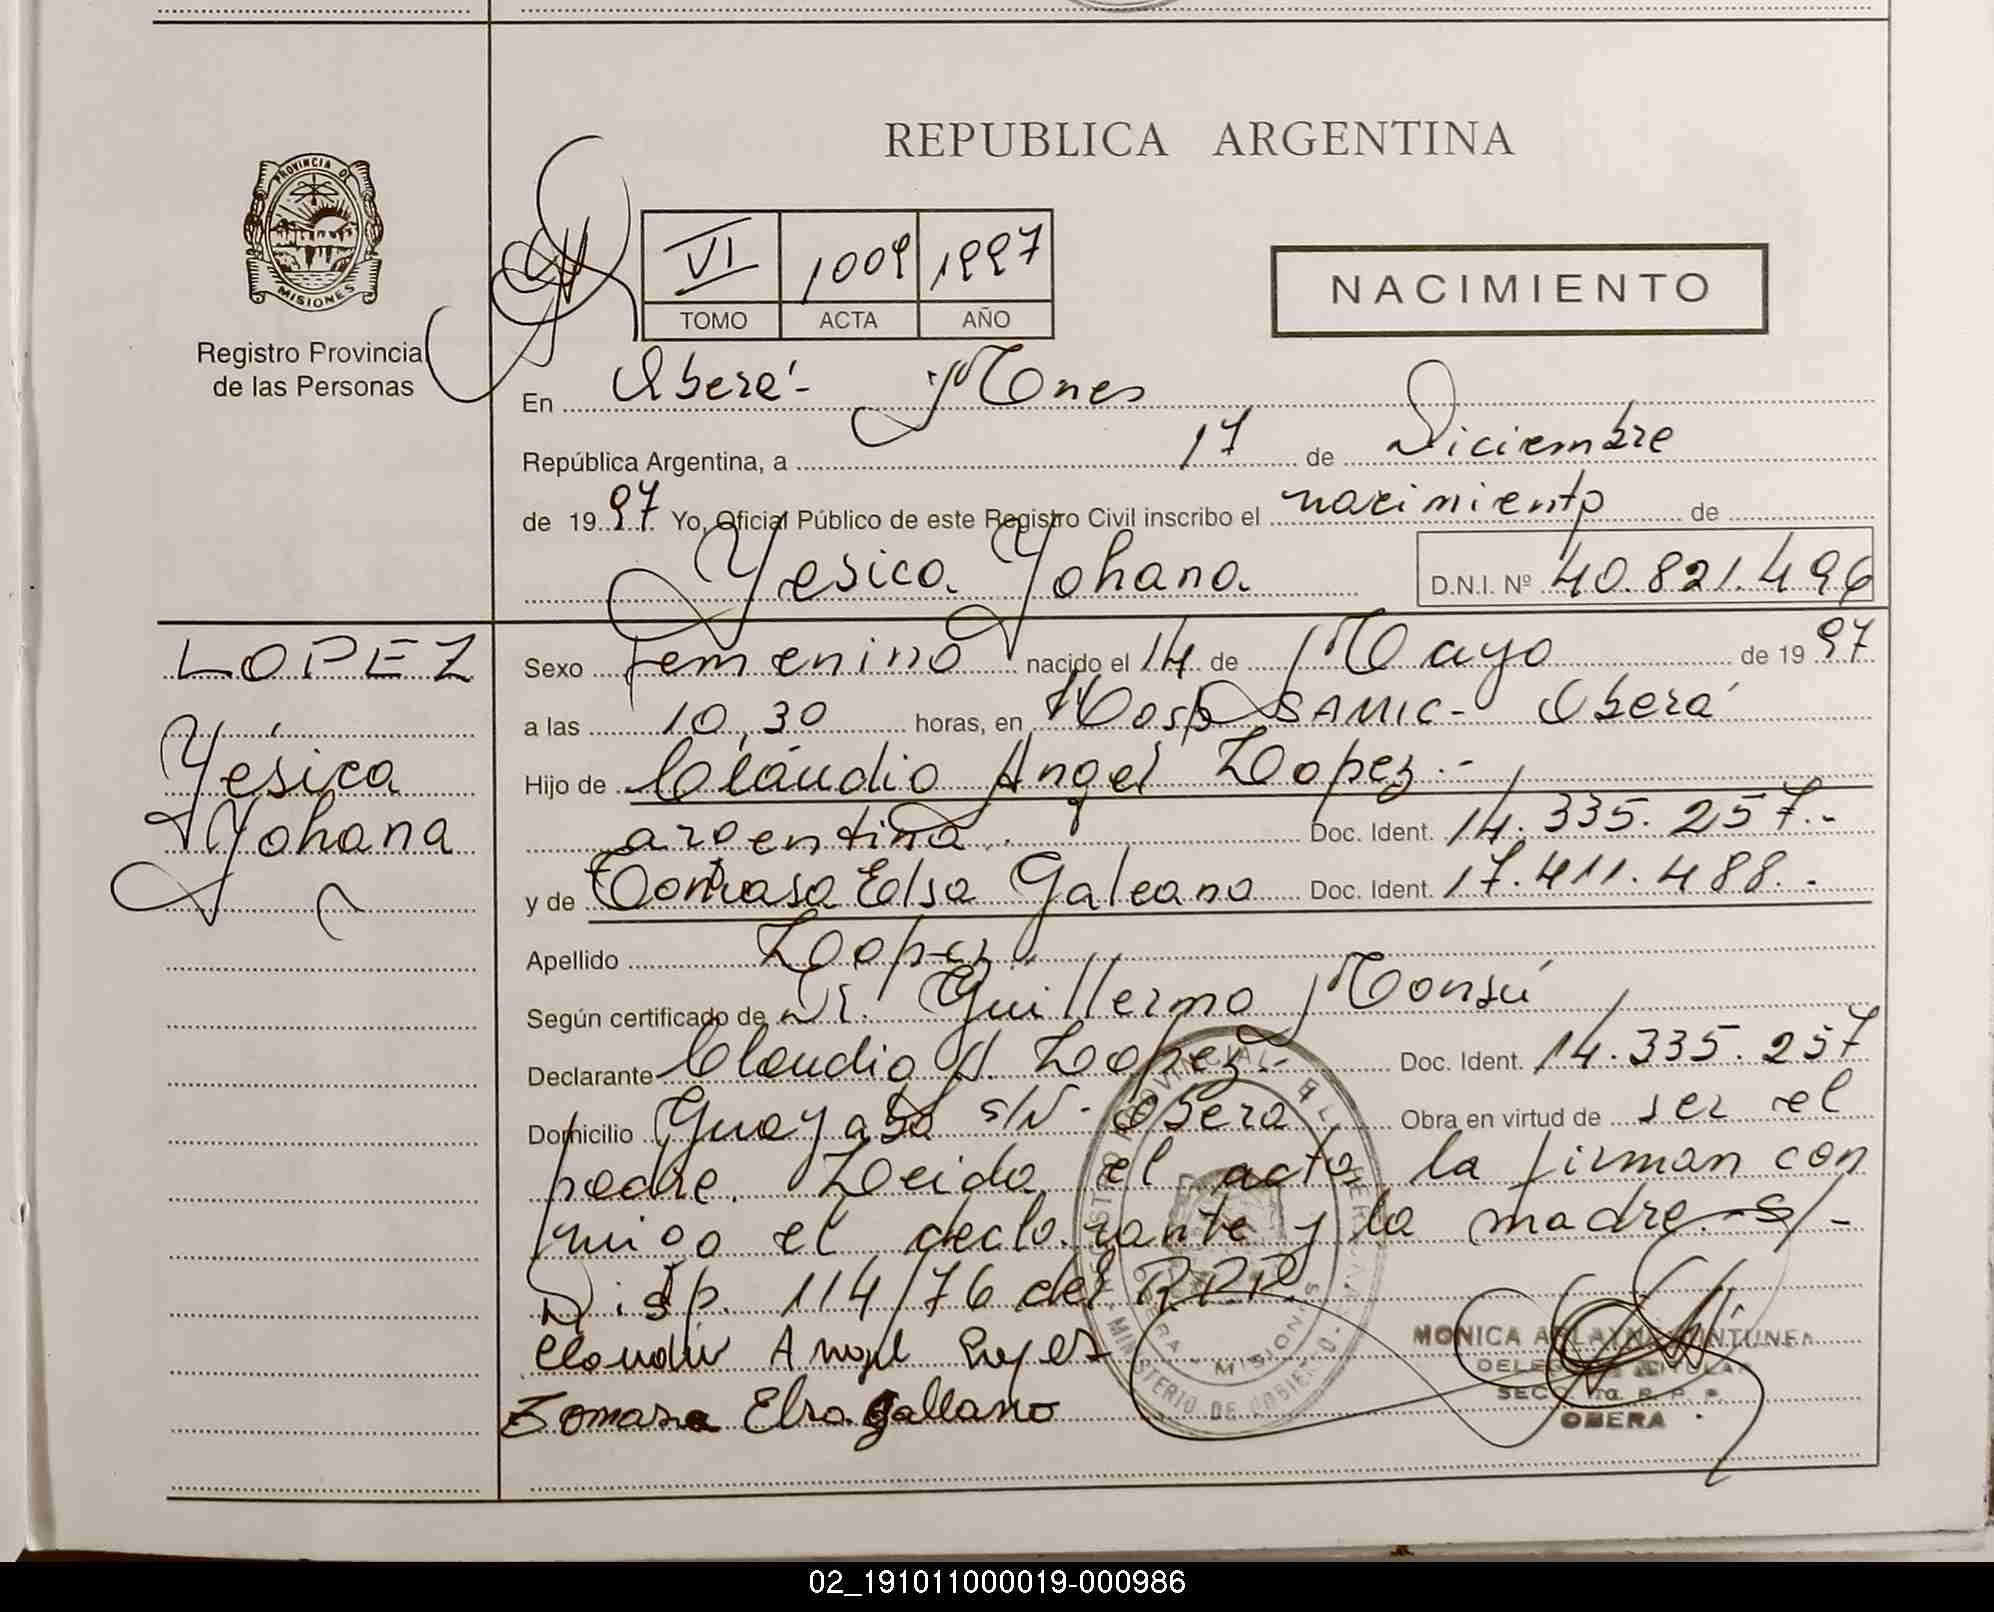 REPUBLICA ARGENTINA
PROVINCIA DE
MISIONES
Registro Provincial
de las Personas
VI 1009 1997
TOMO ACTA AÑO
NACIMIENTO
En Oberá - Mnes
República Argentina, a 17 de Diciembre
de 1997 Yo, Oficial Público de este Registro Civil inscribo el nacimiento de
Yesica Yohana D.N.I. Nº 40.821.496
LOPEZ
Yésica
Yohana
Sexo Femenino nacido el 14 de Mayo de 1997
a las 10,30 horas, en Hosp SAMIC - Oberá
Hijo de Claudio Angel Lopez.-
argentina. Doc. Ident. 14.335.257.-
y de Tomasa Elsa Galeano Doc. Ident. 17.411.488.-
Apellido Lopez
Según certificado de Dr. Guillermo Monsú
Declarante Claudio A. Lopez.- Doc. Ident. 14.335.257
Domicilio Guayaba s/N - Oberá Obra en virtud de ser el
padre. Leida el acta, la firman con
migo el declarante y la madre. s/-
Disp. 114/76 del R.P.P.
Claudio Angel
Tomasa Elsa galeano
MONICA
DELEGADA TITULAR
SECC. R. P. P.
OBERA
MINISTERIO DE GOBIERNO
OBERA - MISIONES
02_191011000019-000986